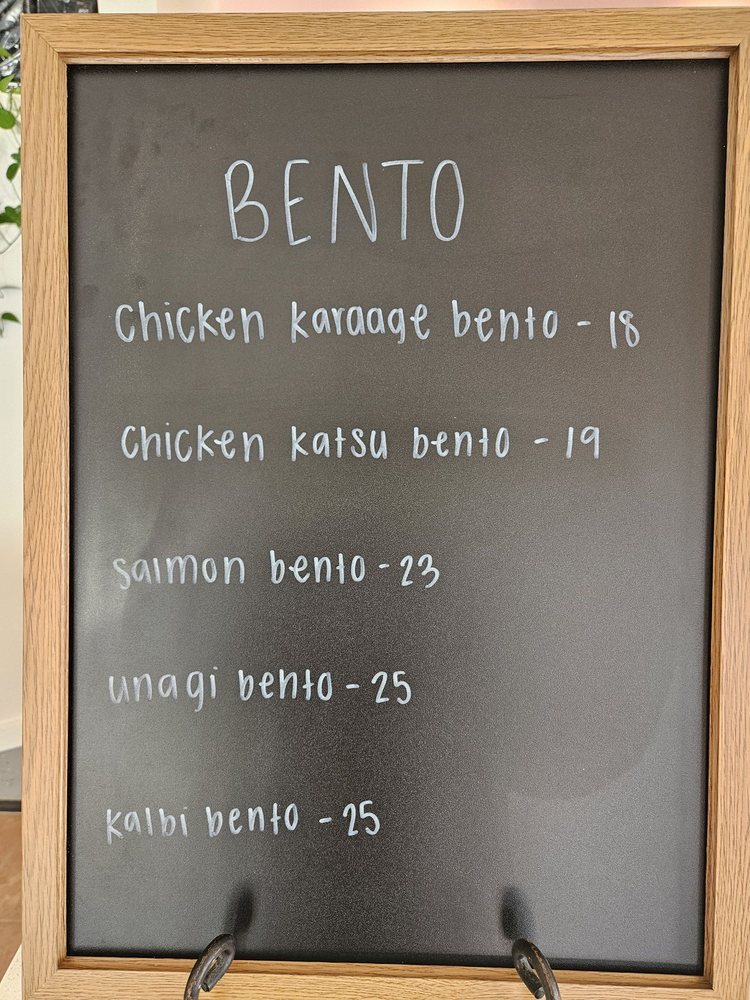 BENTO
Chicken karaage bento - 18
Chicken katsu bento - 19
salmon bento - 23
unagi bento - 25
kalbi bento - 25